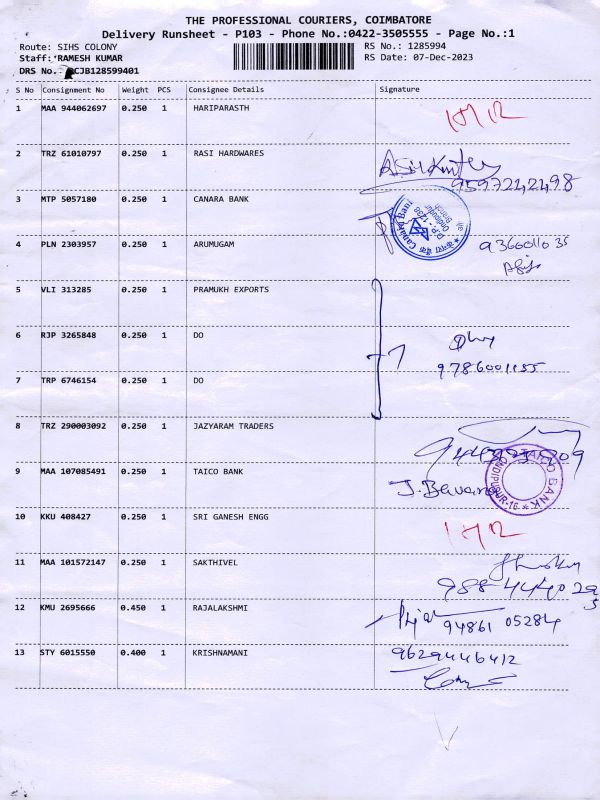 THE PROFESSIONAL COURIERS, COIMBATORE
Delivery Runsheet - P103 - Phone No.:0422-3505555 - Page No.:1
Route: SIHS COLONY RS No.: 1285994
Staff: RAMESH KUMAR RS Date: 07-Dec-2023
DRS No.: CJB128599401
S No Consignment No Weight PCS Consignee Details Signature
1 MAA 944062697 0.250 1 HARIPARASTH
2 TRZ 61010797 0.250 1 RASI HARDWARES
9597242498
3 MTP 5057180 0.250 1 CANARA BANK
Canara Bank
4 PLN 2303957 0.250 1 ARUMUGAM
5 VLI 313285 0.250 1 PRAMUKH EXPORTS
6 RJP 3265848 0.250 1 DO
9786001155
7 TRP 6746154 0.250 1 DO
8 TRZ 290003092 0.250 1 JAZYARAM TRADERS
9 MAA 107085491 0.250 1 TAICO BANK
TAICO BANK
10 KKU 408427 0.250 1 SRI GANESH ENGG
11 MAA 101572147 0.250 1 SAKTHIVEL
12 KMU 2695666 0.450 1 RAJALAKSHMI
94861 05284
13 STY 6015550 0.400 1 KRISHNAMANI
9629446412